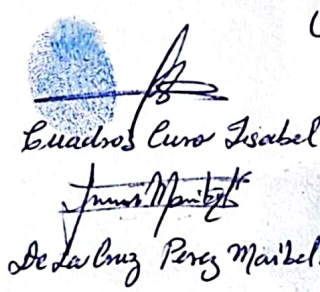 Cuadros Curo Isabel
De La Cruz Perez Maribel.